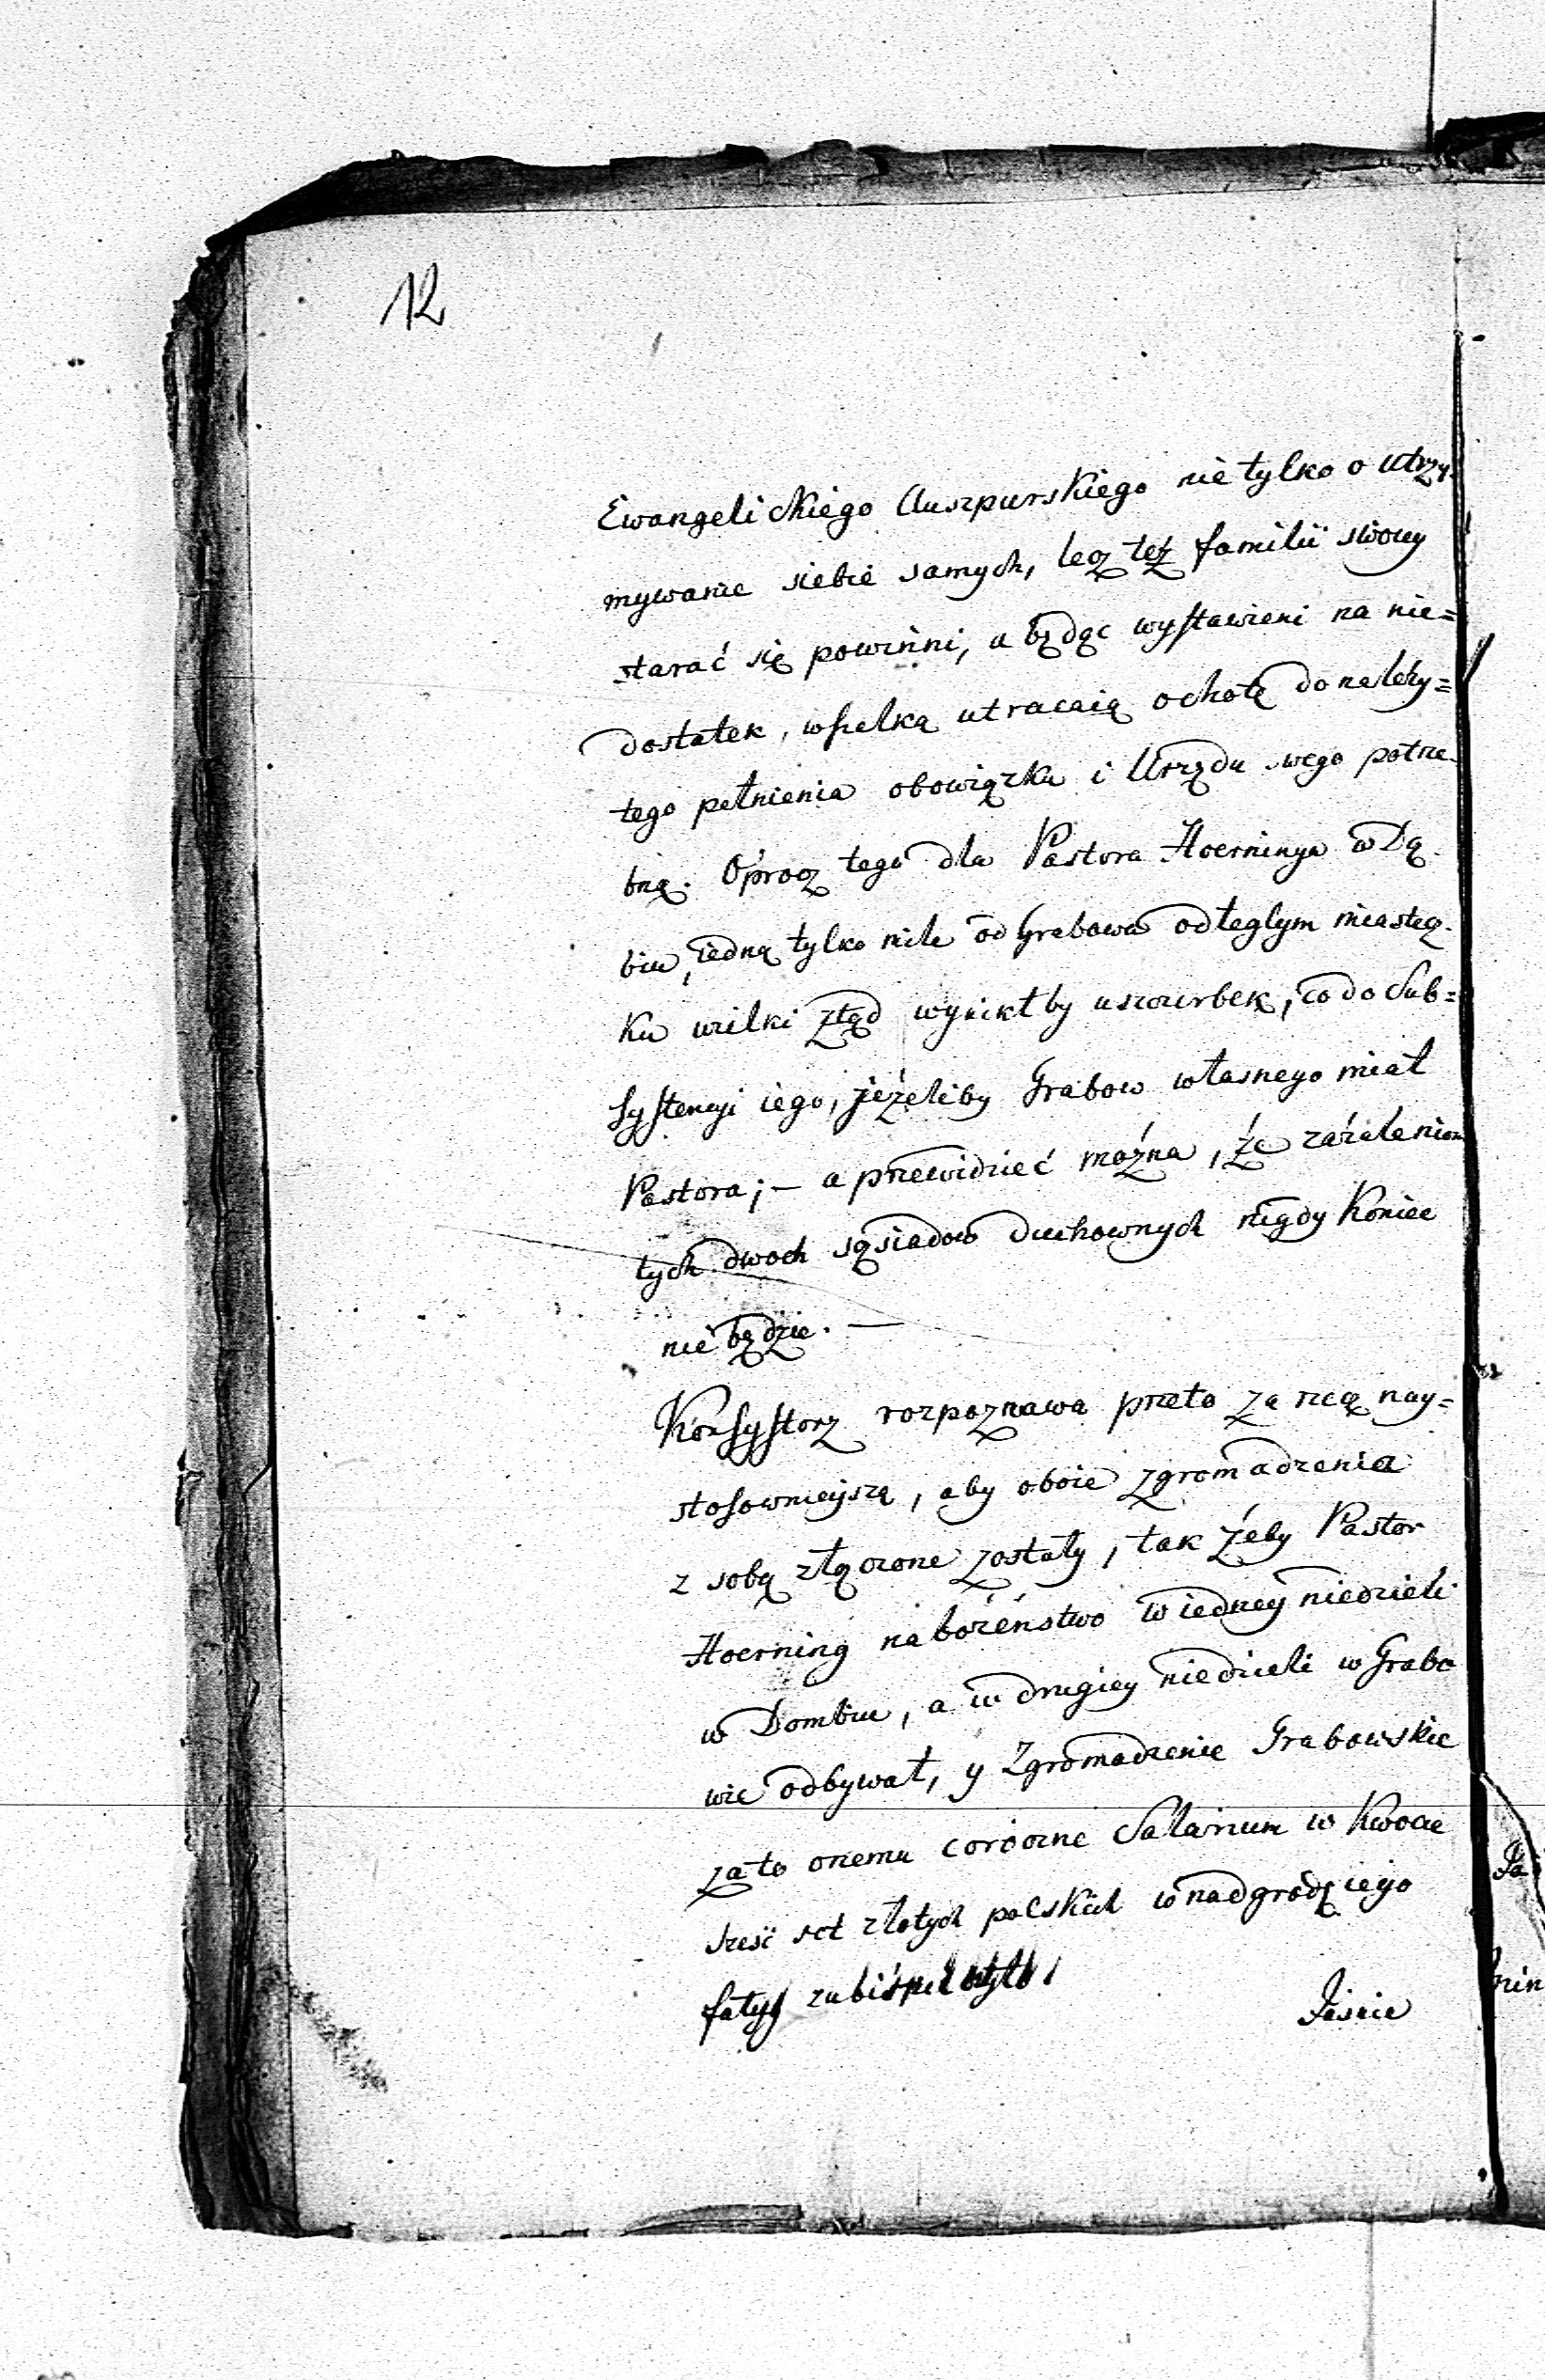 12
Ewangelickiego Auszpurskiego nie tylko o utrzy-
mywanie siebie samych, lecz też familii swoiey
starać się powinni, a będąc wystawieni na nie=
dostatek, wszelką utracaią ochotę do należy=
tego pełnienia obowiązku i Urzędu swego potrze-
bną. Oprocz tego dla Pastora Hoerninga w Dą-
biu, iedną tylko mile od Grabowa odległym miastecz-
ku wielki ztąd wynikłby uszczerbek, co do Sub=
systencyi iego, jeżeliby Grabow własnego miał
Pastora; – a przewidzieć można, że zażaleniom
tych dwoch sąsiadow duchownych nigdy koniec
nie będzie. –
Konsystorz rozpoznawa przeto za rzecz nay=
stosownieyszą, aby oboie zgromadzenia
z sobą złączone zostały, tak żeby Pastor
Hoerning nabożeństwo w iedney niedzieli
w Dombiu, a w drugiey niedzieli w Grabo
wie odbywał, y Zgromadzenie Grabowskie
za to onemu coroczne Salarium w kwocie
sześć set złotych polskich w nadgrodę iego
fatyg
Jaśnie